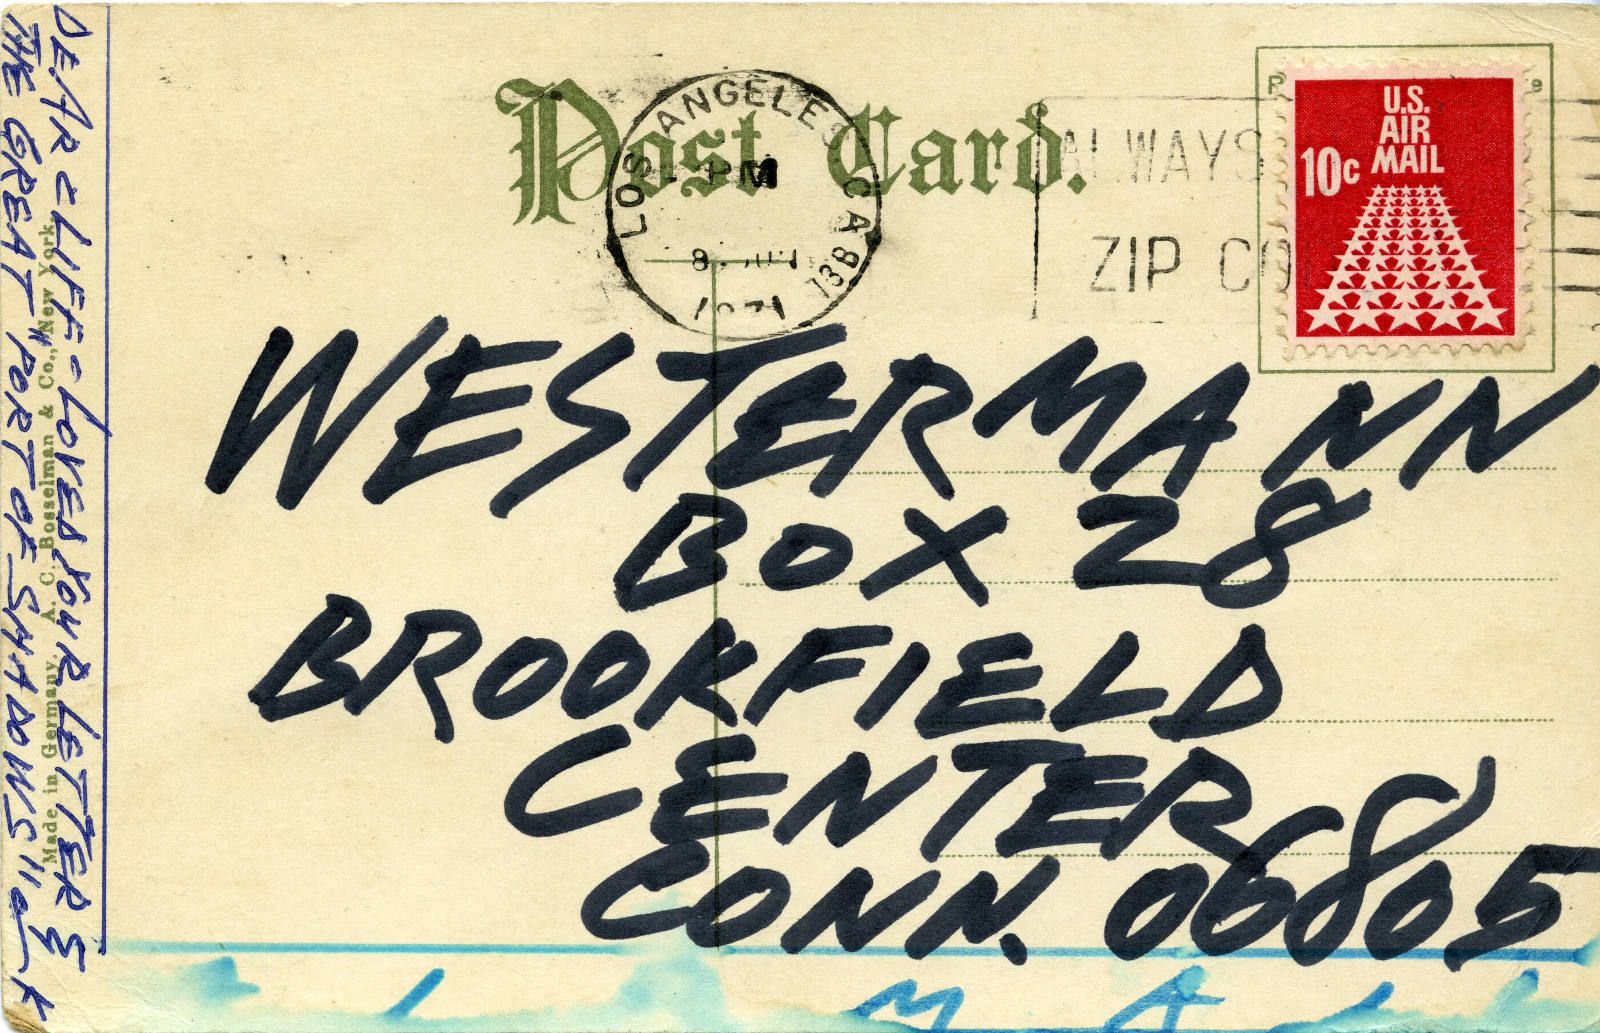 Post Card.
LOS ANGELES CA
PM
1971
73B
ALWAYS
ZIP CO
U.S.
AIR
MAIL
10c
WESTERMANN
BOX 28
BROOKFIELD
CENTER
CONN. 06805
DEAR CLIFF - LOVED YOUR LETTER &
THE GREAT "PORT OF SHADOWS"
Made in Germany. A. C. Bosselman & Co., New York.